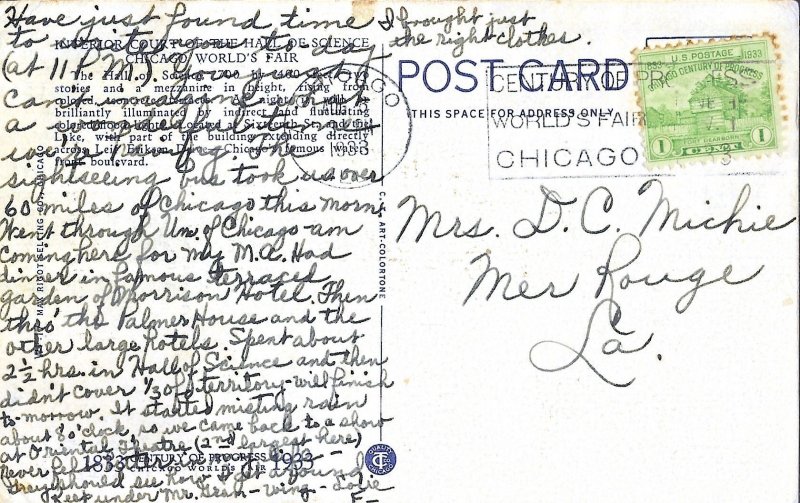 Have just found time
to write you to day
(at 11 P.M.) for you just
can't imagine what
a
The
sightseeing bus took us over
60 miles of Chicago this morn.
Went through Un. of Chicago - am
coming here for my M.A. Had
dinner in famous terraced
garden of Morrison Hotel. Then
thro' the Palmer House and the
other large hotels. Spent about
2½ hrs. in Hall of Science and then
didn't cover ⅓ of territory - will finish
to-morrow. It started misting rain
about 8 o'clock so we came back to a show
at Oriental Theatre (2nd largest here)
Never felt better
They should see how I get around
Keep under Mr. wing - Love
F -
I brought just
the right clothes.
INTERIOR COURT OF THE HALL OF SCIENCE
CHICAGO WORLD'S FAIR
The Hall of Science, 700 feet long, is two
stories and a mezzanine in height, rising from
brilliantly illuminated by indirect and fluctuating
Lake, with part of the building extending directly
across Leif Eriksen Drive, Chicago's famous water-
front boulevard.
1833 CENTURY OF PROGRESS 1933
CHICAGO WORLD'S FAIR
C. T. ART-COLORTONE
POST CARD
THIS SPACE FOR ADDRESS ONLY
CHICAGO
1933
CENTURY OF PROGRESS
WORLD'S FAIR
CHICAGO
U.S. POSTAGE
1833 1933
CENTURY OF PROGRESS
FORT DEARBORN
1 CENT 1
Mrs. D. C. Michie
Mer Rouge
La.